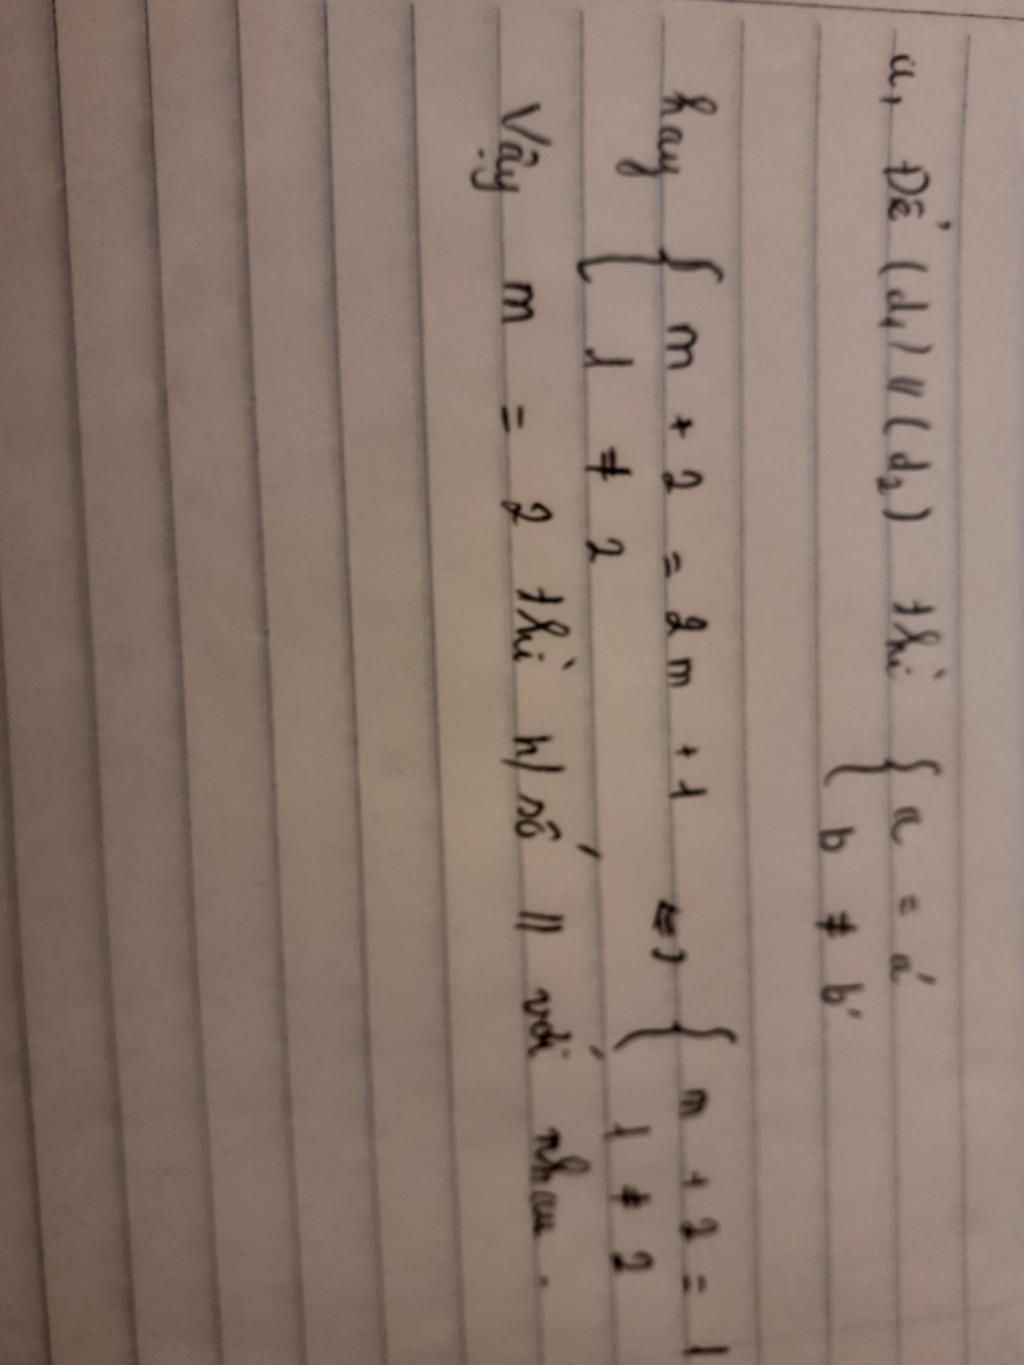 a, Để (d₁) // (d₂) thì { a = a'
b ≠ b'
hay { m + 2 = 2m + 1 <=> { m + 2 = 1
1 ≠ 2 1 ≠ 2
Vậy m = 2 thì h/số // với nhau.